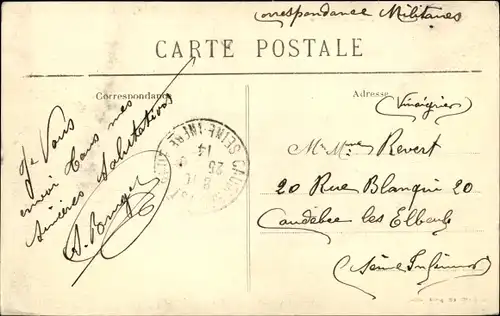 Correspondance Militaires
CARTE POSTALE
Correspondance
Adresse
(Vinaigrier)
Je Vous
envoi tous mes
sincères salutations
Mr Mme Revert
20 Rue Blanqui 20
Caudebec les Elbeuf
(Seine Inférieure)
SEINE-INFRE
14
25